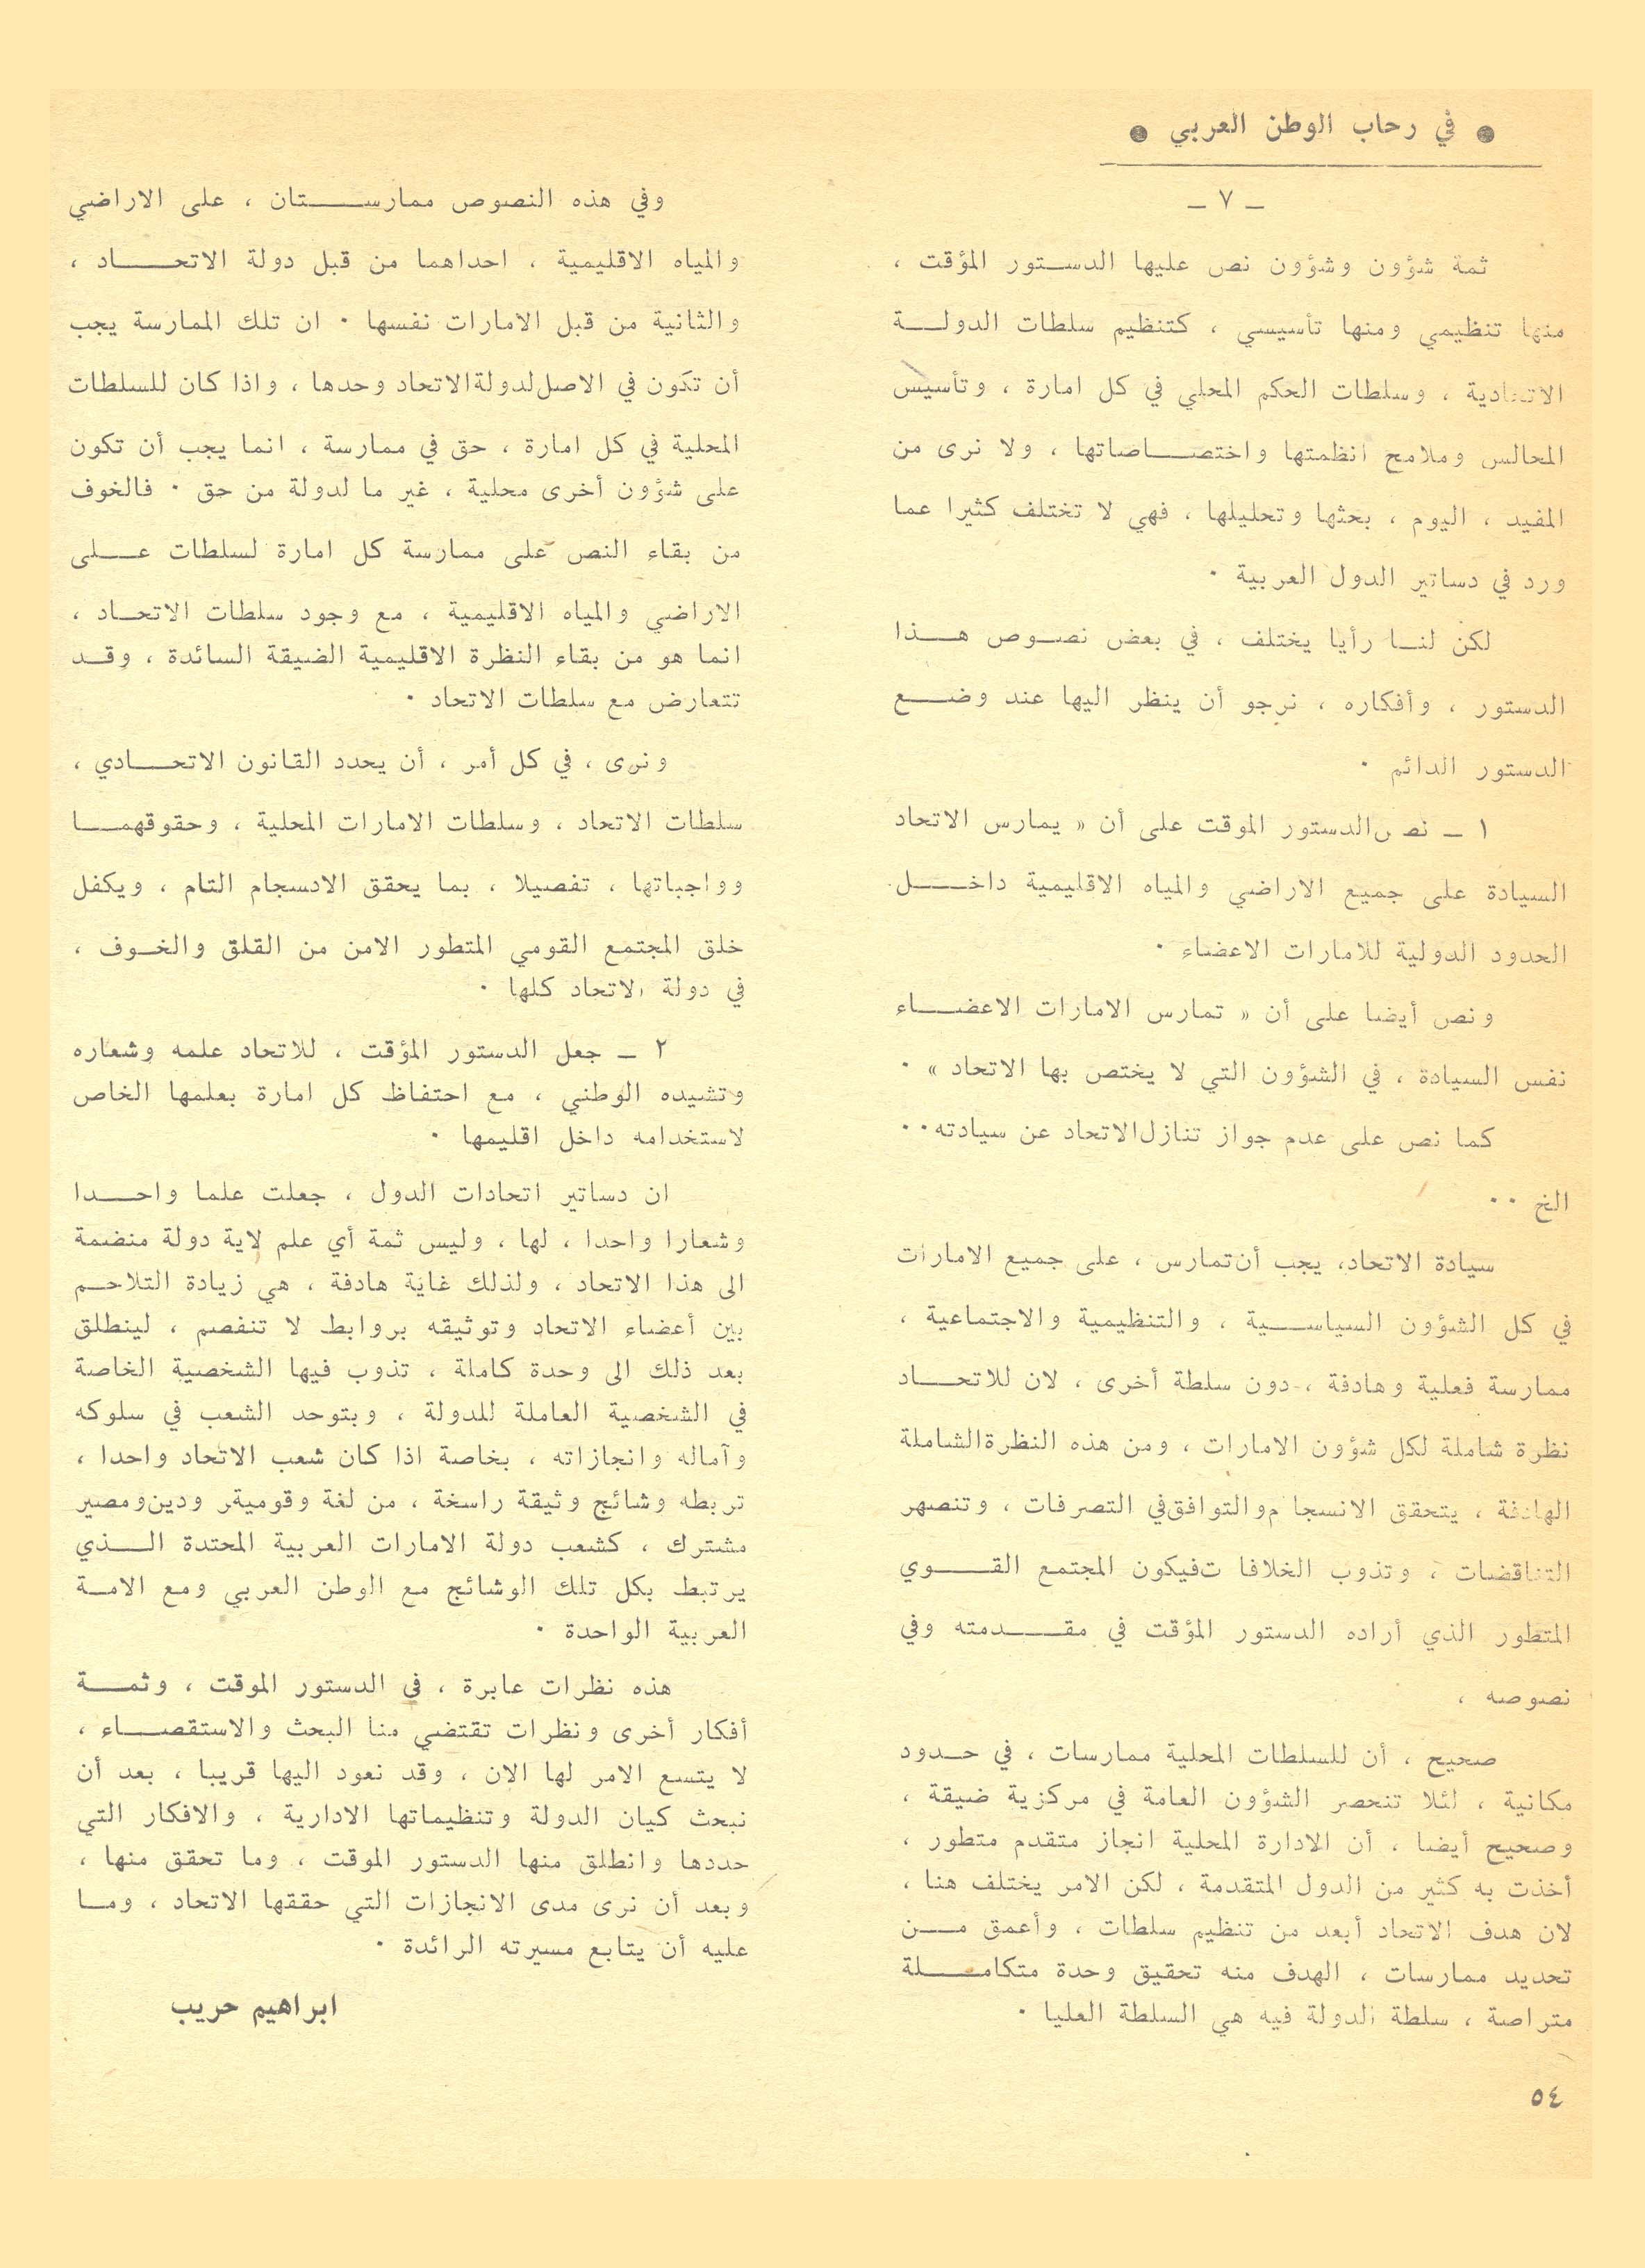 ● في رحاب الوطن العربي ●
ـ ٧ ـ
ثمة شؤون وشؤون نص عليها الدستور المؤقت ،
منها تنظيمي ومنها تأسيسي ، كتنظيم سلطات الدولة
الاتحادية ، وسلطات الحكم المحلي في كل امارة ، وتأسيس
المجالس وملامح انظمتها واختصاصاتها ، ولا نرى من
المفيد ، اليوم ، بحثها وتحليلها ، فهي لا تختلف كثيرا عما
ورد في دساتير الدول العربية ٠
لكن لنا رأيا يختلف ، في بعض نصوص هذا
الدستور ، وأفكاره ، نرجو أن ينظر اليها عند وضع
الدستور الدائم ٠
١ ـ نص الدستور الموقت على أن « يمارس الاتحاد
السيادة على جميع الاراضي والمياه الاقليمية داخل
الحدود الدولية للامارات الاعضاء ٠
ونص أيضا على أن « تمارس الامارات الاعضاء
نفس السيادة ، في الشؤون التي لا يختص بها الاتحاد » ٠
كما نص على عدم جواز تنازل الاتحاد عن سيادته ٠٠
الخ ٠٠
سيادة الاتحاد، يجب أن تمارس ، على جميع الامارات
في كل الشؤون السياسية ، والتنظيمية والاجتماعية ،
ممارسة فعلية وهادفة ، دون سلطة أخرى ، لان للاتحاد
نظرة شاملة لكل شؤون الامارات ، ومن هذه النظرة الشاملة
الهادفة ، يتحقق الانسجا م والتوافق في التصرفات ، وتنصهر
التناقضات ، وتذوب الخلافا ت فيكون المجتمع القوي
المتطور الذي أراده الدستور المؤقت في مقدمته وفي
نصوصه ،
صحيح ، أن للسلطات المحلية ممارسات ، في حدود
مكانية ، لئلا تنحصر الشؤون العامة في مركزية ضيقة ،
وصحيح أيضا ، أن الادارة المحلية انجاز متقدم متطور ،
أخذت به كثير من الدول المتقدمة ، لكن الامر يختلف هنا ،
لان هدف الاتحاد أبعد من تنظيم سلطات ، وأعمق من
تحديد ممارسات ، الهدف منه تحقيق وحدة متكاملة
متراصة ، سلطة الدولة فيه هي السلطة العليا ٠
وفي هذه النصوص ممارستان ، على الاراضي
والمياه الاقليمية ، احداهما من قبل دولة الاتحاد ،
والثانية من قبل الامارات نفسها ٠ ان تلك الممارسة يجب
أن تكون في الاصل لدولة الاتحاد وحدها ، واذا كان للسلطات
المحلية في كل امارة ، حق في ممارسة ، انما يجب أن تكون
على شؤون أخرى محلية ، غير ما لدولة من حق ٠ فالخوف
من بقاء النص على ممارسة كل امارة لسلطات على
الاراضي والمياه الاقليمية ، مع وجود سلطات الاتحاد ،
انما هو من بقاء النظرة الاقليمية الضيقة السائدة ، وقد
تتعارض مع سلطات الاتحاد ٠
ونرى ، في كل أمر ، أن يحدد القانون الاتحادي ،
سلطات الاتحاد ، وسلطات الامارات المحلية ، وحقوقهما
وواجباتها ، تفصيلا ، بما يحقق الانسجام التام ، ويكفل
خلق المجتمع القومي المتطور الامن من القلق والخوف ،
في دولة الاتحاد كلها ٠
٢ ـ جعل الدستور المؤقت ، للاتحاد علمه وشعاره
وتشيده الوطني ، مع احتفاظ كل امارة بعلمها الخاص
لاستخدامه داخل اقليمها ٠
ان دساتير اتحادات الدول ، جعلت علما واحدا
وشعارا واحدا ، لها ، وليس ثمة أي علم لاية دولة منضمة
الى هذا الاتحاد ، ولذلك غاية هادفة ، هي زيادة التلاحم
بين أعضاء الاتحاد وتوثيقه بروابط لا تنفصم ، لينطلق
بعد ذلك الى وحدة كاملة ، تذوب فيها الشخصية الخاصة
في الشخصية العاملة للدولة ، وبتوحد الشعب في سلوكه
وآماله وانجازاته ، بخاصة اذا كان شعب الاتحاد واحدا ،
تربطه وشائج وثيقة راسخة ، من لغة وقوميةر ودين ومصير
مشترك ، كشعب دولة الامارات العربية المحتدة الذي
يرتبط بكل تلك الوشائج مع الوطن العربي ومع الامة
العربية الواحدة ٠
هذه نظرات عابرة ، في الدستور الموقت ، وثمة
أفكار أخرى ونظرات تقتضي منا البحث والاستقصاء ،
لا يتسع الامر لها الان ، وقد نعود اليها قريبا ، بعد أن
نبحث كيان الدولة وتنظيماتها الادارية ، والافكار التي
حددها وانطلق منها الدستور الموقت ، وما تحقق منها ،
وبعد أن نرى مدى الانجازات التي حققها الاتحاد ، وما
عليه أن يتابع مسيرته الرائدة ٠
ابراهيم حريب
٥٤